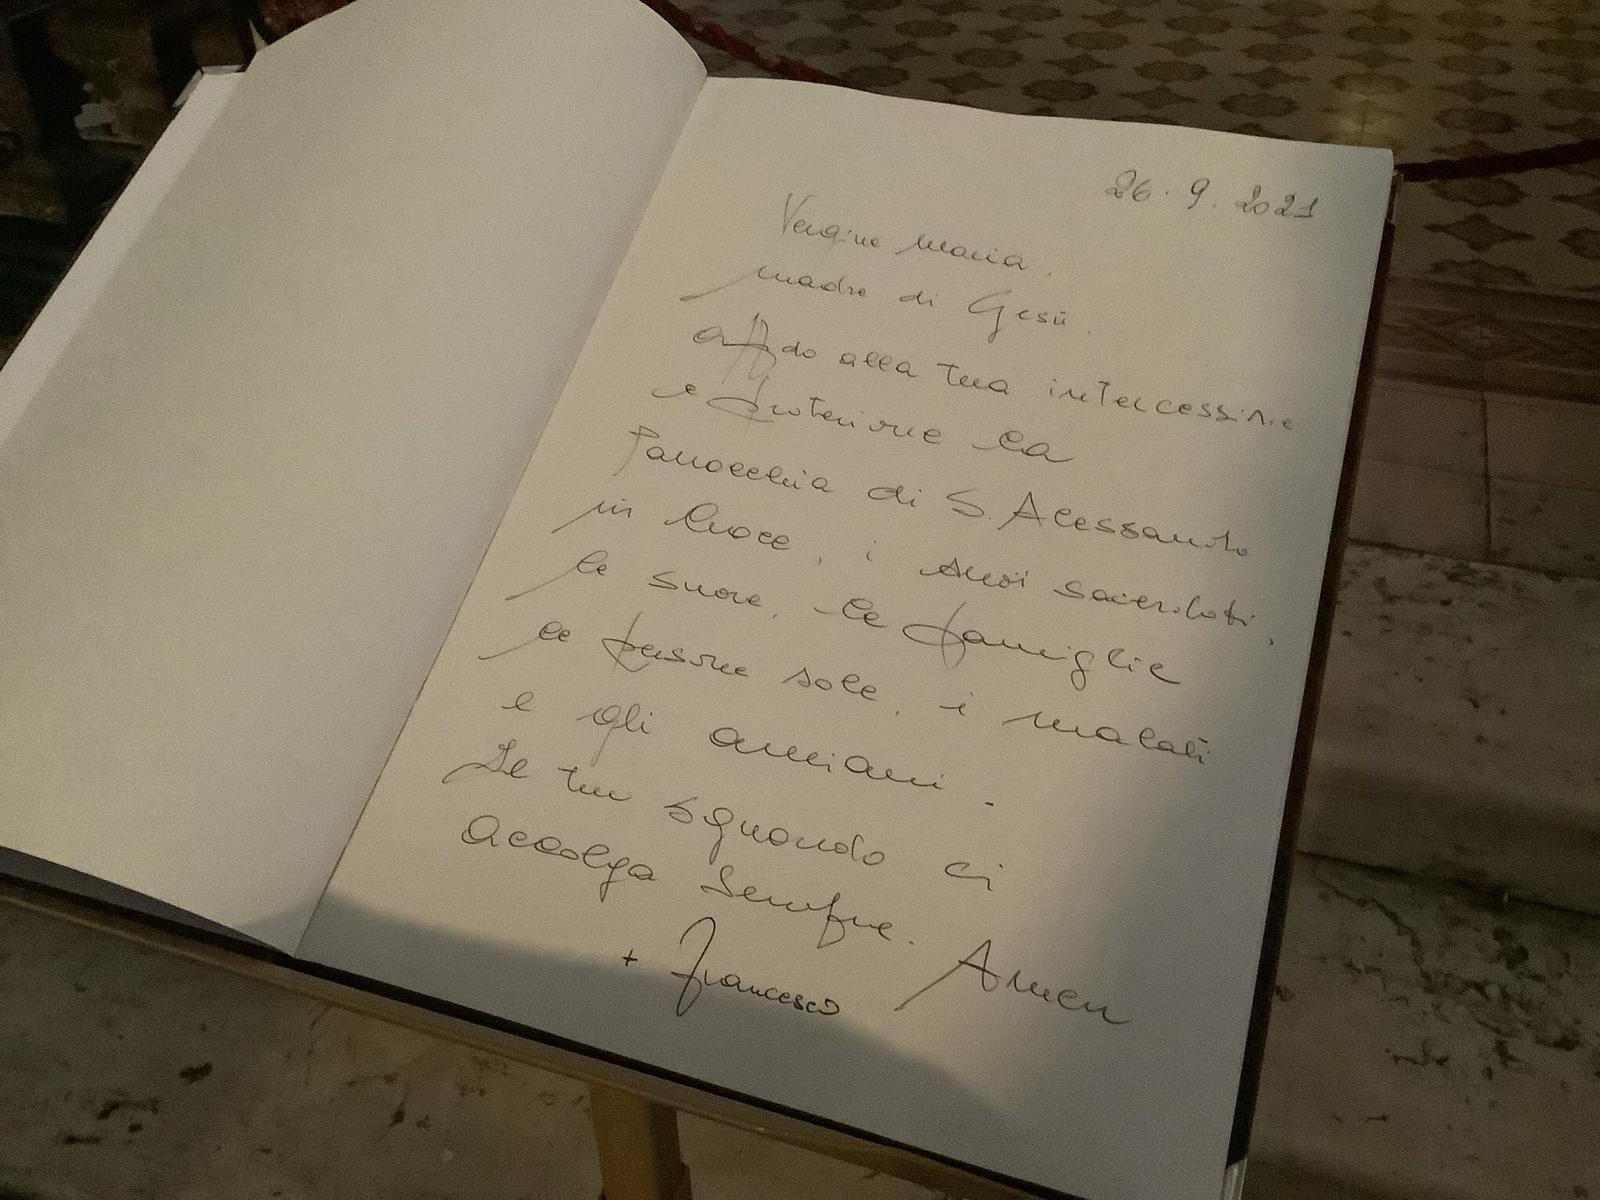 26.9.2021
Vergine Maria,
madre di Gesù,
affido alla tua intercessione
e protezione la
Parrocchia di S. Alessandro
in Croce, i suoi sacerdoti,
le suore, le famiglie
le persone sole, i malati
e gli anziani.
Il tuo sguardo ci
accolga sempre. Amen
+ Francesco